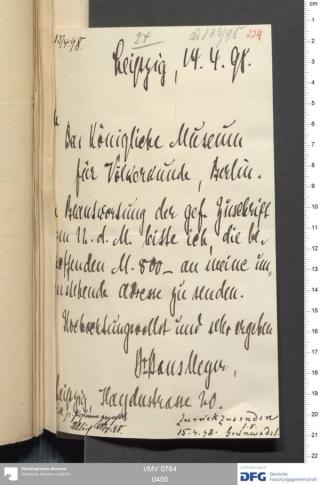 13/4.98.
24
ad 133/98
224
Leipzig, 14.4.98.
Das Königliche Museum
für Völkerkunde, Berlin.
Beantwortung der gef. Zuschrift
um U. d. M. bitte ich, die be-
treffenden M. 800_ an meine um-
stehende Adresse zu senden.
Hochachtungsvollst und sehr ergeben
Dr Hans Meyer,
Leipzig Haydnstrasse 20.
Zurückzusenden
15.4.98. Grünwedel
Ethnologisches Museum
Staatliche Museen zu Berlin
I/MV 0764
0450
gefördert durch
DFG Deutsche
Forschungsgemeinschaft
cm
1
2
3
4
5
6
7
8
9
10
11
12
13
14
15
16
17
18
19
20
21
22